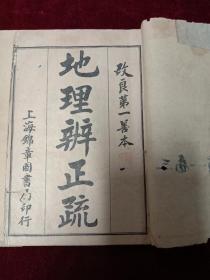 改良第一善本
地理辨正疏
上海錦章圖書局印行